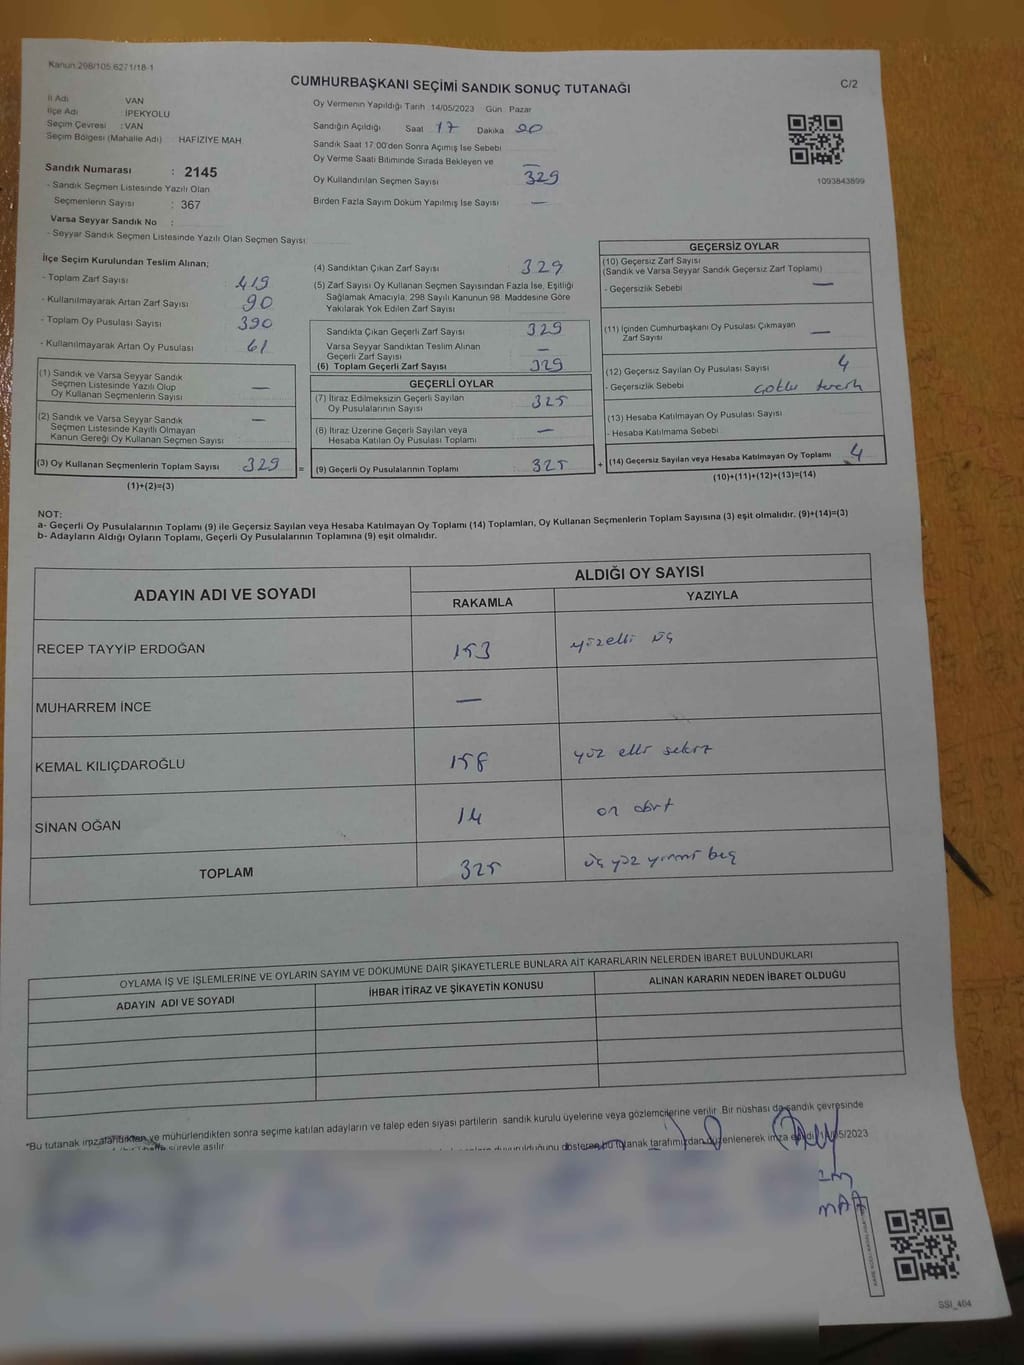 Kanun:298/105.6271/18-1
CUMHURBAŞKANI SEÇİMİ SANDIK SONUÇ TUTANAĞI
C/2
İl Adı VAN
İlçe Adı İPEKYOLU
Seçim Çevresi : VAN
Seçim Bölgesi (Mahalle Adı) HAFIZIYE MAH
Sandık Numarası : 2145
- Sandık Seçmen Listesinde Yazılı Olan
Seçmenlerin Sayısı : 367
Varsa Seyyar Sandık No :
- Seyyar Sandık Seçmen Listesinde Yazılı Olan Seçmen Sayısı:
Oy Vermenin Yapıldığı Tarih 14/05/2023 Gün Pazar
Sandığın Açıldığı Saat 17 Dakika 20
Sandık Saat 17.00'den Sonra Açımış İse Sebebi
Oy Verme Saati Bitiminde Sırada Bekleyen ve —
Oy Kullandırılan Seçmen Sayısı 329
Birden Fazla Sayım Döküm Yapılmış İse Sayısı —
1093843899
İlçe Seçim Kurulundan Teslim Alınan;
- Toplam Zarf Sayısı 419
- Kullanılmayarak Artan Zarf Sayısı 90
- Toplam Oy Pusulası Sayısı 390
- Kullanılmayarak Artan Oy Pusulası 61
(1) Sandık ve Varsa Seyyar Sandık
Seçmen Listesinde Yazılı Olup
Oy Kullanan Seçmenlerin Sayısı —
(2) Sandık ve Varsa Seyyar Sandık
Seçmen Listesinde Kayıtlı Olmayan
Kanun Gereği Oy Kullanan Seçmen Sayısı —
(3) Oy Kullanan Seçmenlerin Toplam Sayısı 329 =
(1)+(2)=(3)
(4) Sandıktan Çıkan Zarf Sayısı 329
(5) Zarf Sayısı Oy Kullanan Seçmen Sayısından Fazla İse, Eşitliği
Sağlamak Amacıyla, 298 Sayılı Kanunun 98. Maddesine Göre
Yakılarak Yok Edilen Zarf Sayısı
Sandıkta Çıkan Geçerli Zarf Sayısı 329
Varsa Seyyar Sandıktan Teslim Alınan
Geçerli Zarf Sayısı —
(6) Toplam Geçerli Zarf Sayısı 329
GEÇERLİ OYLAR
(7) İtiraz Edilmeksizin Geçerli Sayılan
Oy Pusulalarının Sayısı 325
(8) İtiraz Üzerine Geçerli Sayılan veya
Hesaba Katılan Oy Pusulası Toplamı —
(9) Geçerli Oy Pusulalarının Toplamı 325 +
GEÇERSİZ OYLAR
(10) Geçersiz Zarf Sayısı
(Sandık ve Varsa Seyyar Sandık Geçersiz Zarf Toplamı)
- Geçersizlik Sebebi —
(11) İçinden Cumhurbaşkanı Oy Pusulası Çıkmayan
Zarf Sayısı —
(12) Geçersiz Sayılan Oy Pusulası Sayısı 4
- Geçersizlik Sebebi çoklu tercih
(13) Hesaba Katılmayan Oy Pusulası Sayısı
- Hesaba Katılmama Sebebi
(14) Geçersiz Sayılan veya Hesaba Katılmayan Oy Toplamı 4
(10)+(11)+(12)+(13)=(14)
NOT:
a- Geçerli Oy Pusulalarının Toplamı (9) ile Geçersiz Sayılan veya Hesaba Katılmayan Oy Toplamı (14) Toplamları, Oy Kullanan Seçmenlerin Toplam Sayısına (3) eşit olmalıdır. (9)+(14)=(3)
b- Adayların Aldığı Oyların Toplamı, Geçerli Oy Pusulalarının Toplamına (9) eşit olmalıdır.
ADAYIN ADI VE SOYADI
ALDIĞI OY SAYISI
RAKAMLA YAZIYLA
RECEP TAYYİP ERDOĞAN 153 yüzelli üç
MUHARREM İNCE —
KEMAL KILIÇDAROĞLU 158 yüz elli sekiz
SİNAN OĞAN 14 on dört
TOPLAM 325 üç yüz yirmi beş
OYLAMA İŞ VE İŞLEMLERİNE VE OYLARIN SAYIM VE DÖKÜMÜNE DAİR ŞİKAYETLERLE BUNLARA AİT KARARLARIN NELERDEN İBARET BULUNDUKLARI
ADAYIN ADI VE SOYADI İHBAR İTİRAZ VE ŞİKAYETİN KONUSU ALINAN KARARIN NEDEN İBARET OLDUĞU
*Bu tutanak imzalandıktan ve mühürlendikten sonra seçime katılan adayların ve talep eden siyasi partilerin sandık kurulu üyelerine veya gözlemcilerine verilir. Bir nüshası da sandık çevresinde
süreyle asılır. duyurulduğunu gösteren bu tutanak tarafımızdan düzenlenerek imza edildi.
SSI_404